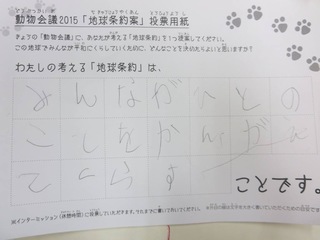 動物会議2015「地球条約案」投票用紙
きょうの「動物会議」に、あなたが考える「地球条約」を1つ提案してください。
この地球でみんなが平和にくらしていくために、どんなことを決めたらよいと思いますか?
わたしの考える「地球条約」は、
みんながひとの
ことをかんがえ
てくらす
ことです。
※インターミッション(休憩時間)に投票していただきます。